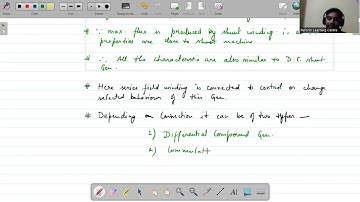 * ∵ max. flux is produced by shunt winding ∴
properties are close to shunt machine.
* ∴ All the characteristic are also similar to D.C. shunt
Gen.
* Here series field winding is connected to control or change
selected behaviour of this Gen.
* Depending on Connection it can be of two types —
1) Differential Compound Gen.
2) Cummulatt
Learning Centre